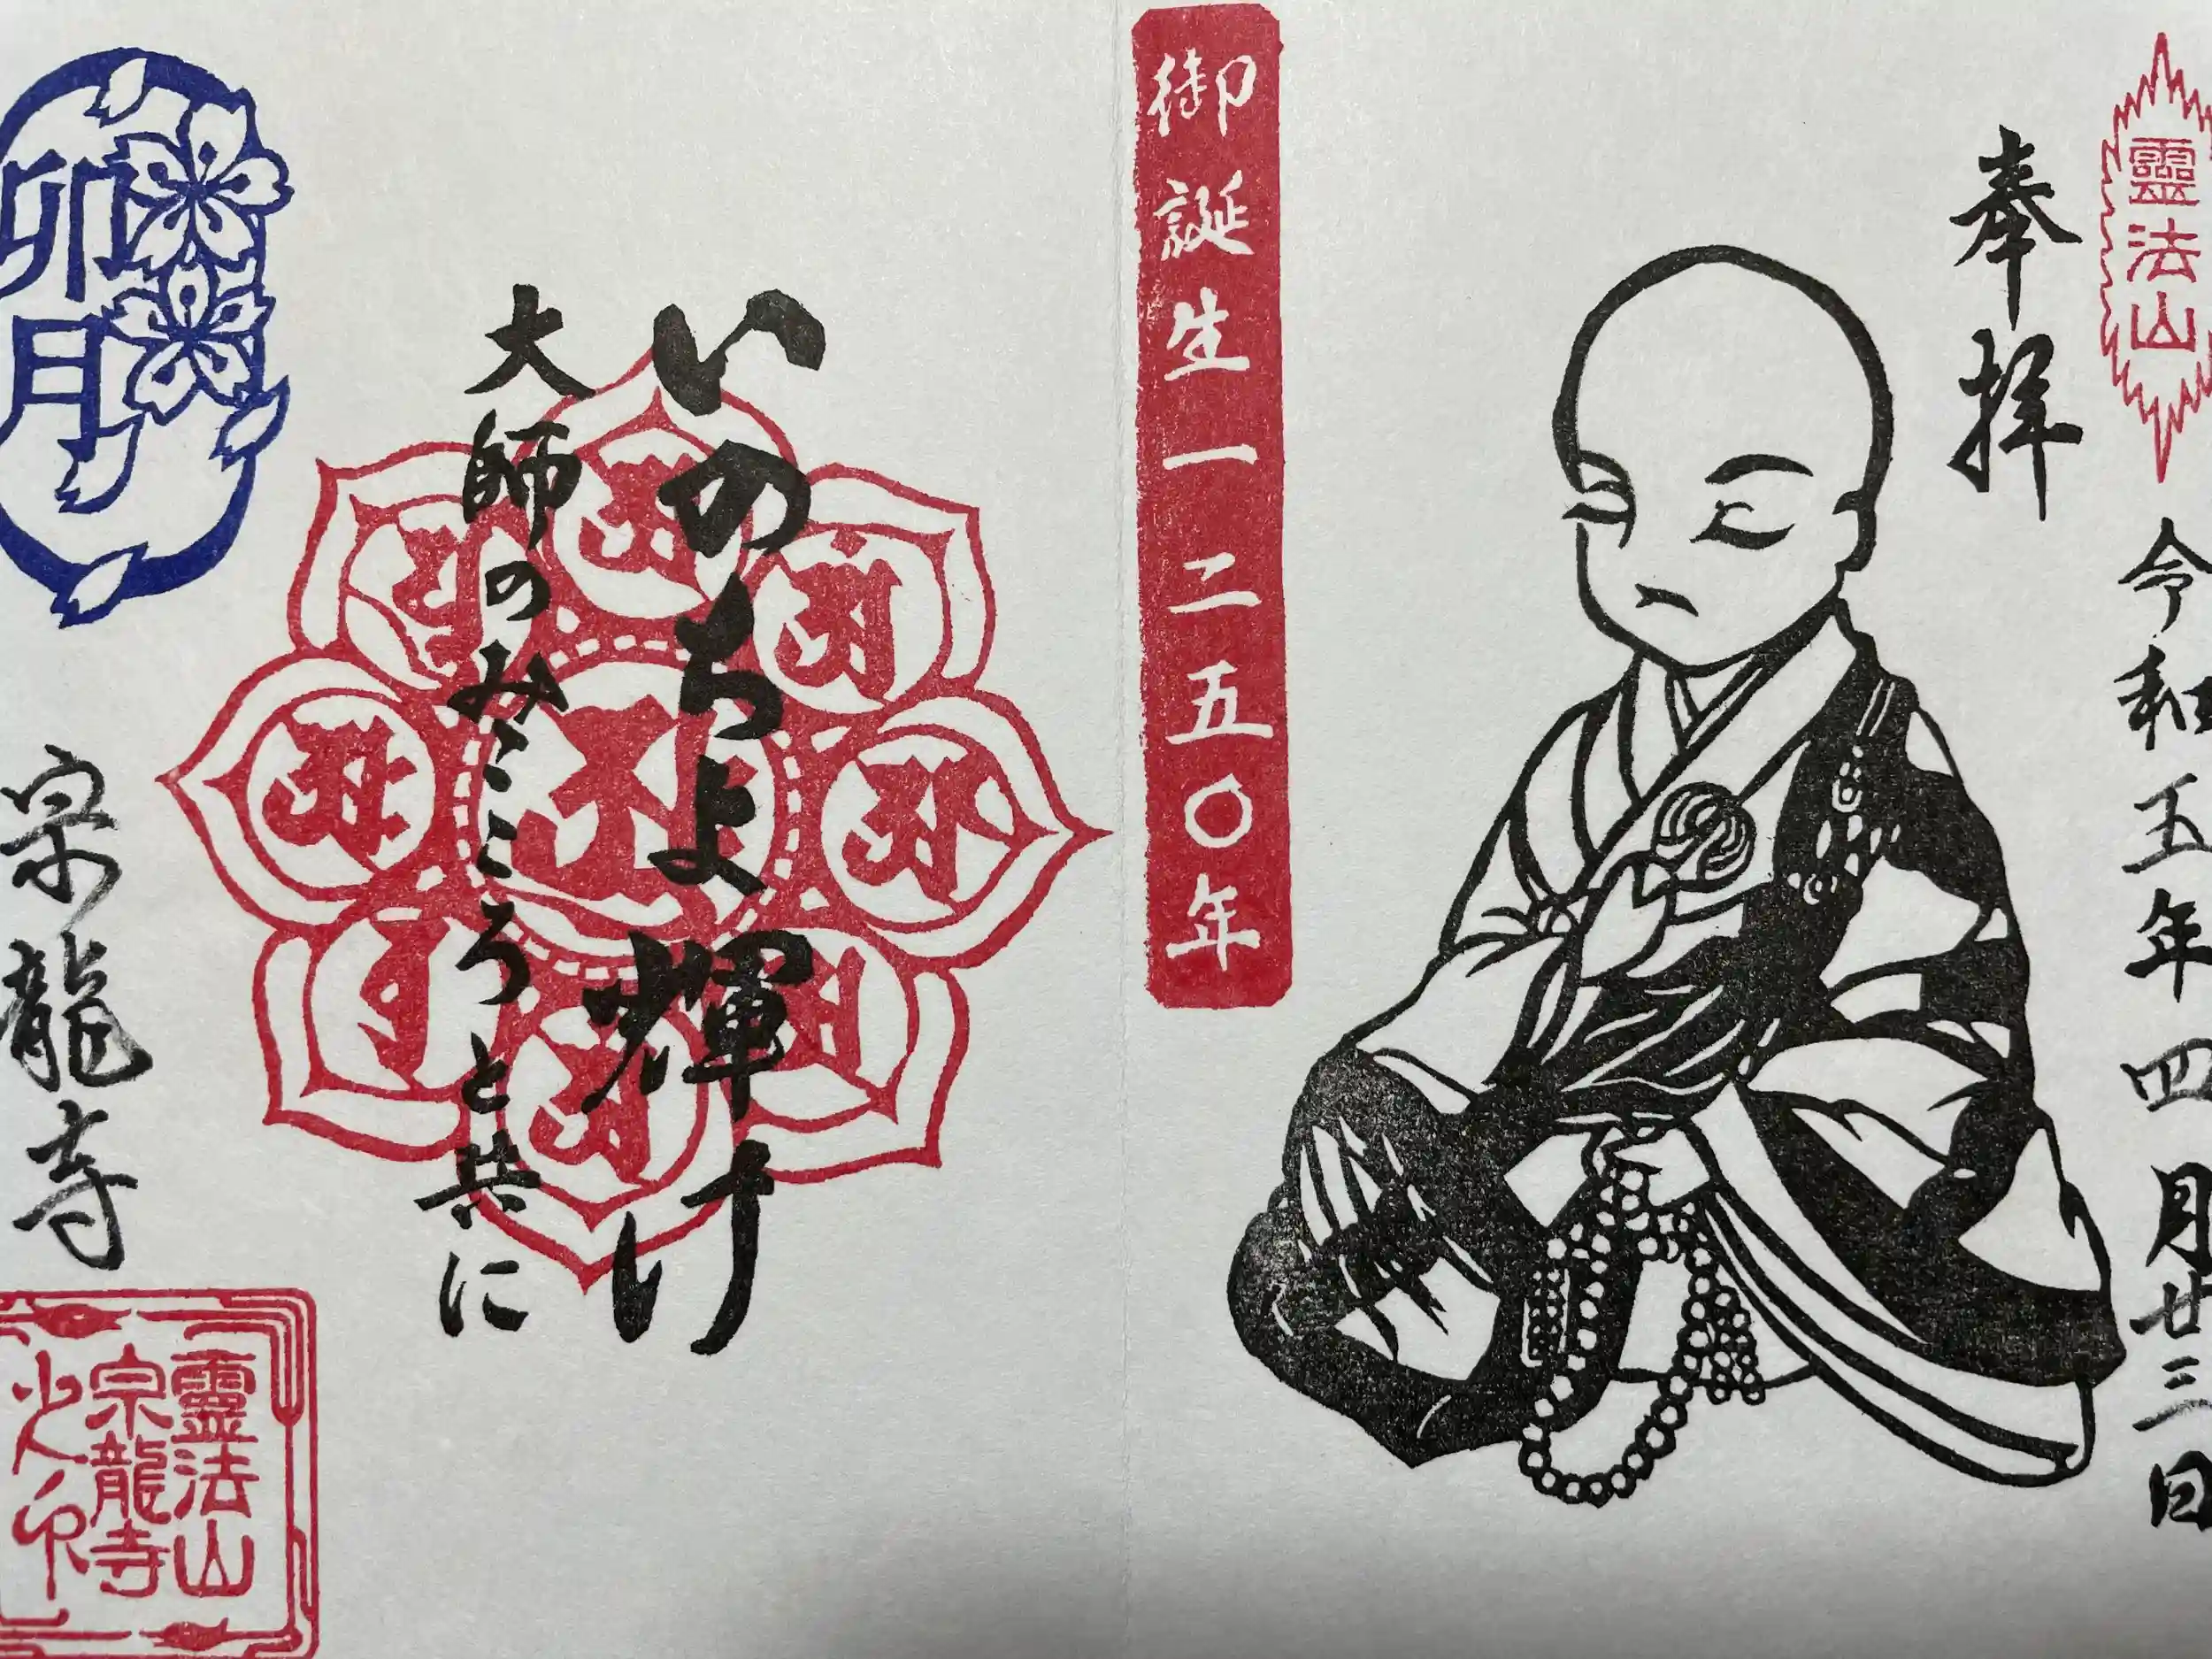 靈法山
令和五年四月廿三日
奉拝
御誕生一二五〇年
いのちよ輝け
大師のみこころと共に
卯月
宗龍寺
靈法山
宗龍寺